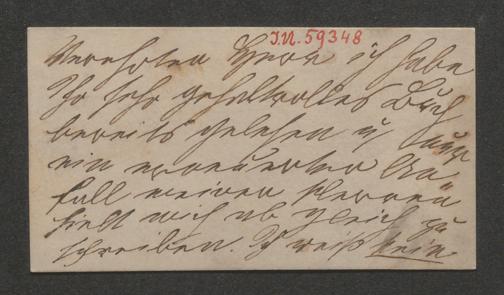 I.N. 59348
Verehrter Herr ich habe
Ihr sehr gehaltvolles Buch
bereits gelesen u nur
ein erneuerter An
fall meiner Nerven
hielt mich ab gleich zu
schreiben. Ich weiß kein